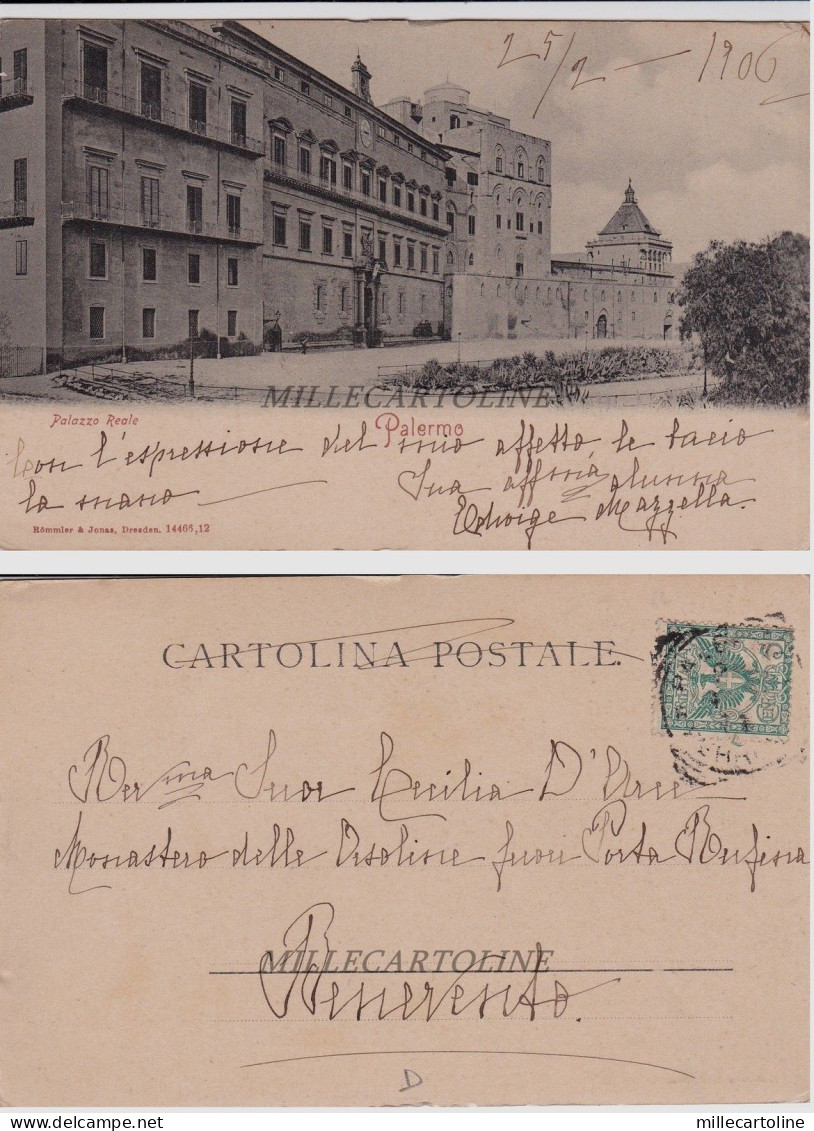 25/2 - 1906
MILLECARTOLINE
Palazzo Reale
Palermo
Con l'espressione del mio affetto le bacio
la mano
Sua affma alunna
Edvige Mazzella.
Römmler & Jonas, Dresden. 14466,12
CARTOLINA POSTALE.
Rerma Suor Cecilia D'Arce
Monastero delle Orsoline fuori Porta Rufina
MILLECARTOLINE
Benevento.
D
delcampe.net
millecartoline